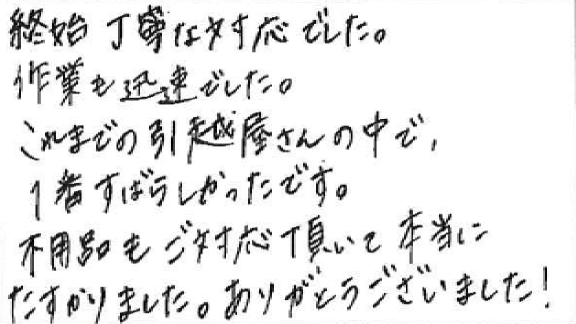 終始丁寧な対応でした。
作業も迅速でした。
これまでの引越屋さんの中で、
1番すばらしかったです。
不用品もご対応頂いて本当に
たすかりました。ありがとうございました!